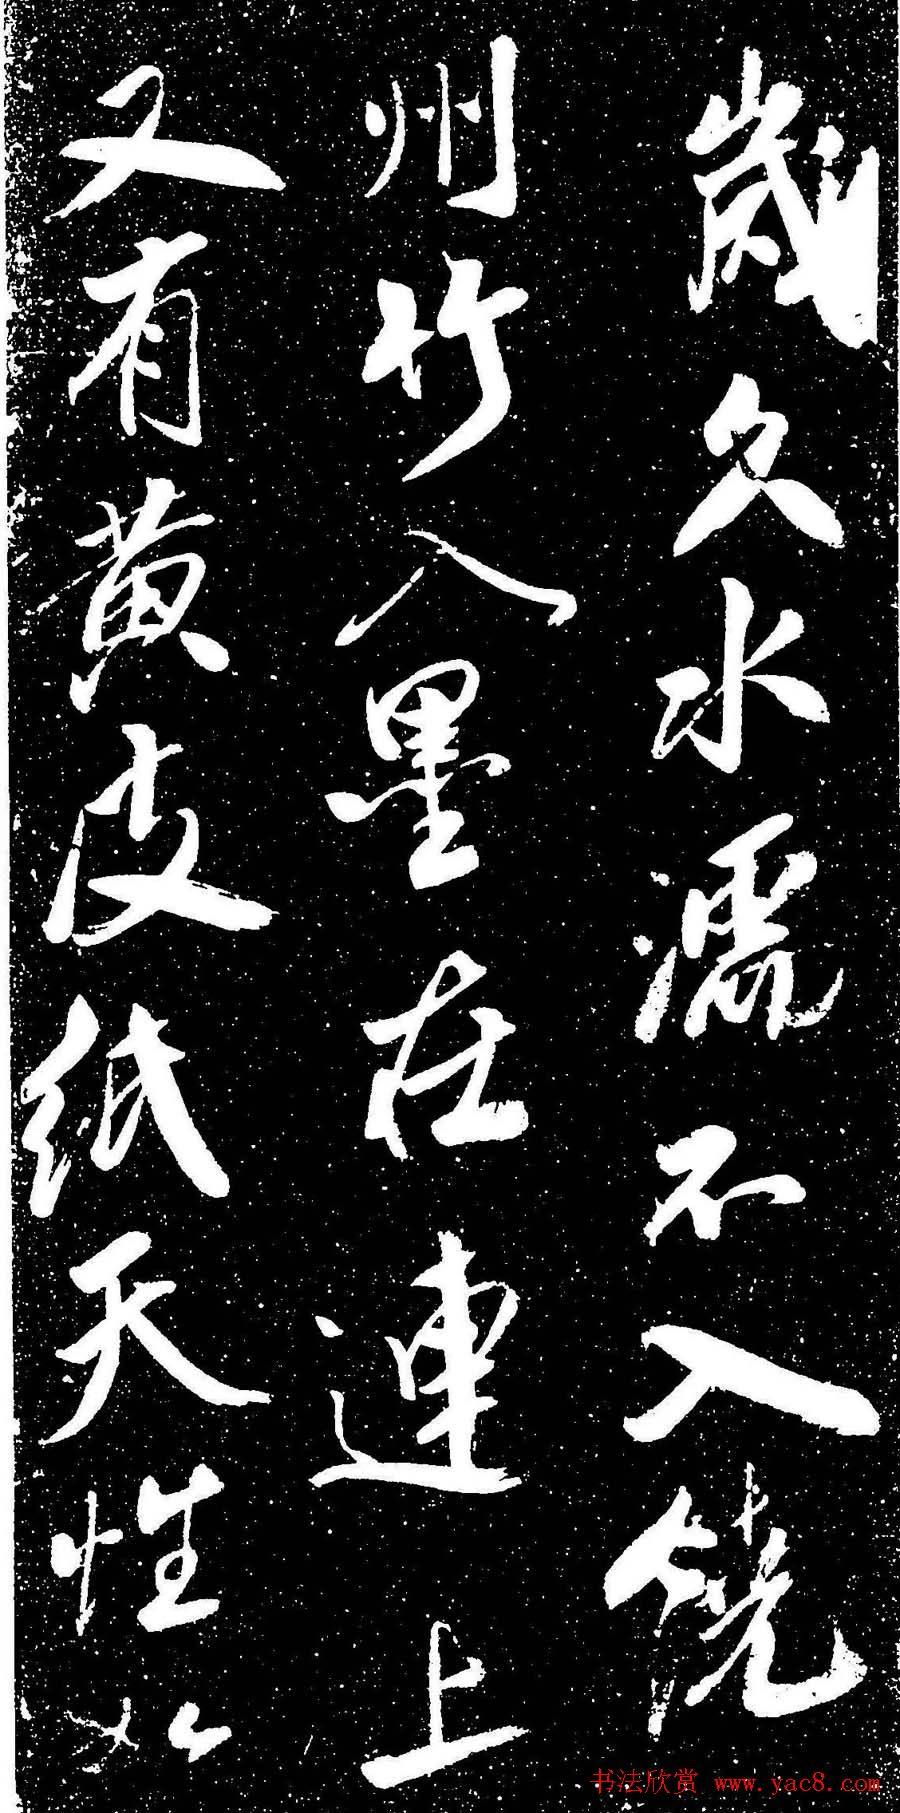 歲久水濡不入饒
州竹入墨在連上
又有黃皮紙天性如
书法欣赏 www.yac8.com